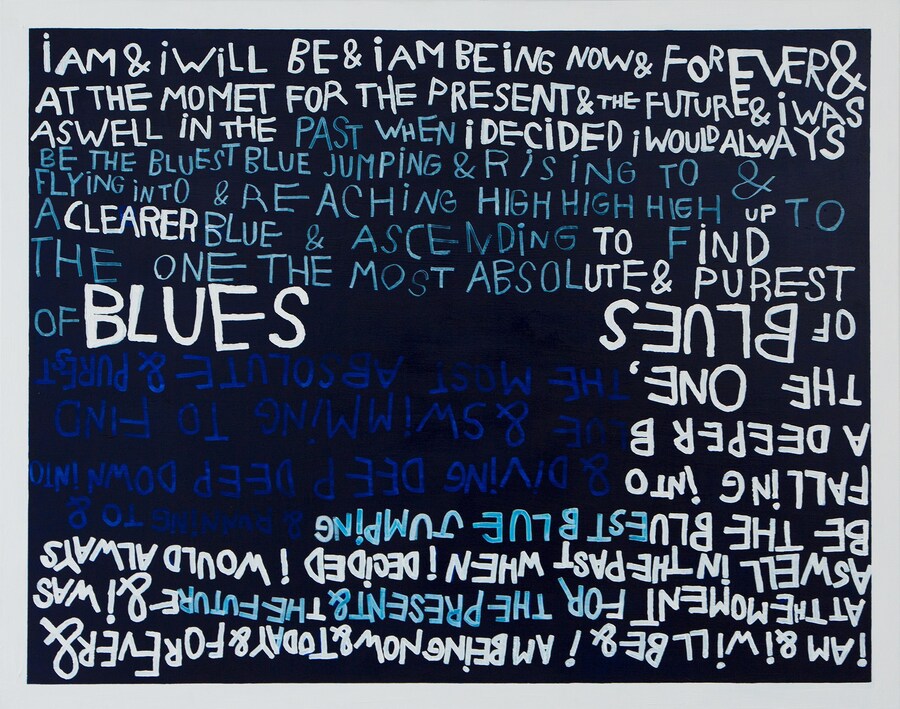 iAM & iWiLL BE & iAM BEiNG NOW & FOREVER &
AT THE MOMET FOR THE PRESENT & THE FUTURE & i WAS
ASWELL iN THE PAST WHEN i DECIDED i WOULD ALWAYS
BE THE BLUEST BLUE JUMPiNG & RiSiNG TO &
FLYiNG iNTO & REACHiNG HIGH HIGH HIGH UP TO
A CLEARER BLUE & ASCENDiNG TO FiND
THE ONE THE MOST ABSOLUTE & PUREST
OF BLUES
iAM & iWiLL BE & i AM BEiNG NOW & TODAY & FOREVER &
AT THE MOMENT FOR THE PRESENT & THE FUTURE & i WAS
ASWELL iN THE PAST WHEN i DECiDED i WOULD ALWAYS
BE THE BLUEST BLUE JUMPiNG & RUNNiNG TO &
FALLiNG iNTO & DiViNG DEEP DEEP DOWN iNTO
A DEEPER BLUE & SWiMMiNG TO FiND
THE ONE, THE MOST ABSOLUTE & PUREST
OF BLUES